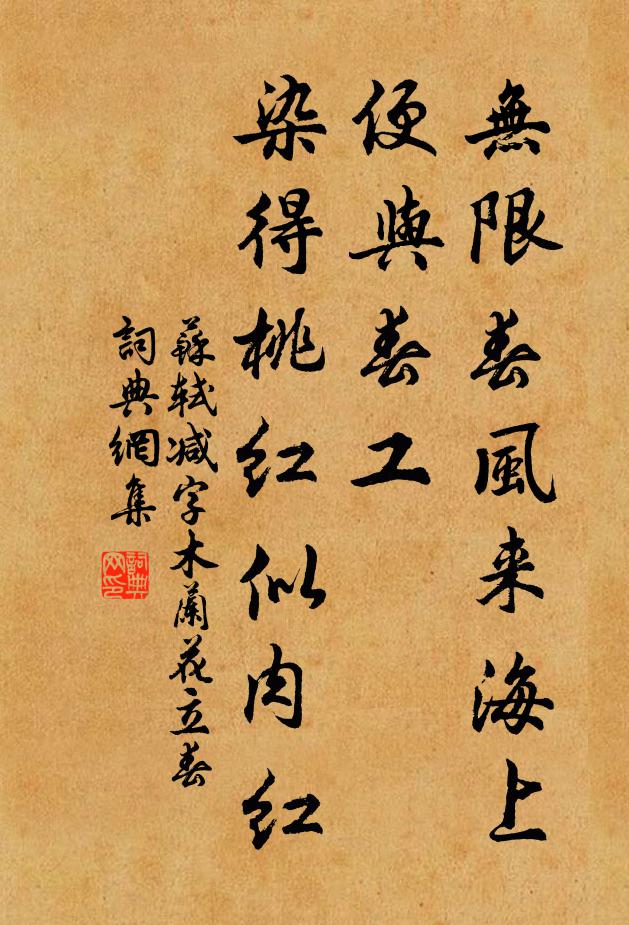 無限春風来海上
便與春工
染得桃紅似肉紅
蘇軾減字木蘭花立春
詞典網集
詞典网印